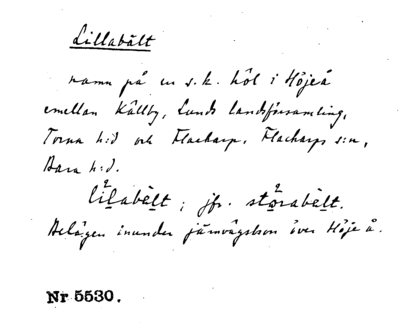 Lillabält
namn på en s.k. höl i Höjeå
emellan Källby, Lunds landsförsamling,
Torna h:d och Flackarp, Flackarps s:n,
Bara h:d.
lilabält; jfr. storabält.
Belägen inunder järnvägsbron över Höje å.
Nr 5530.